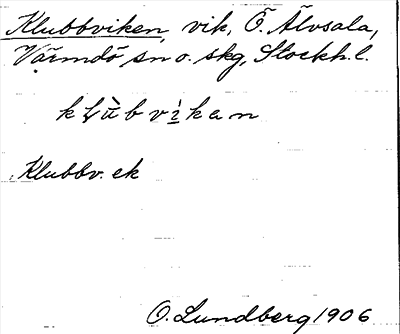 Klubbviken, vik, Ö. Älvsala,
Värmdö sn o. skg, Stockh. l.
klùbvìkan
Klubbv. ek
O. Lundberg 1906